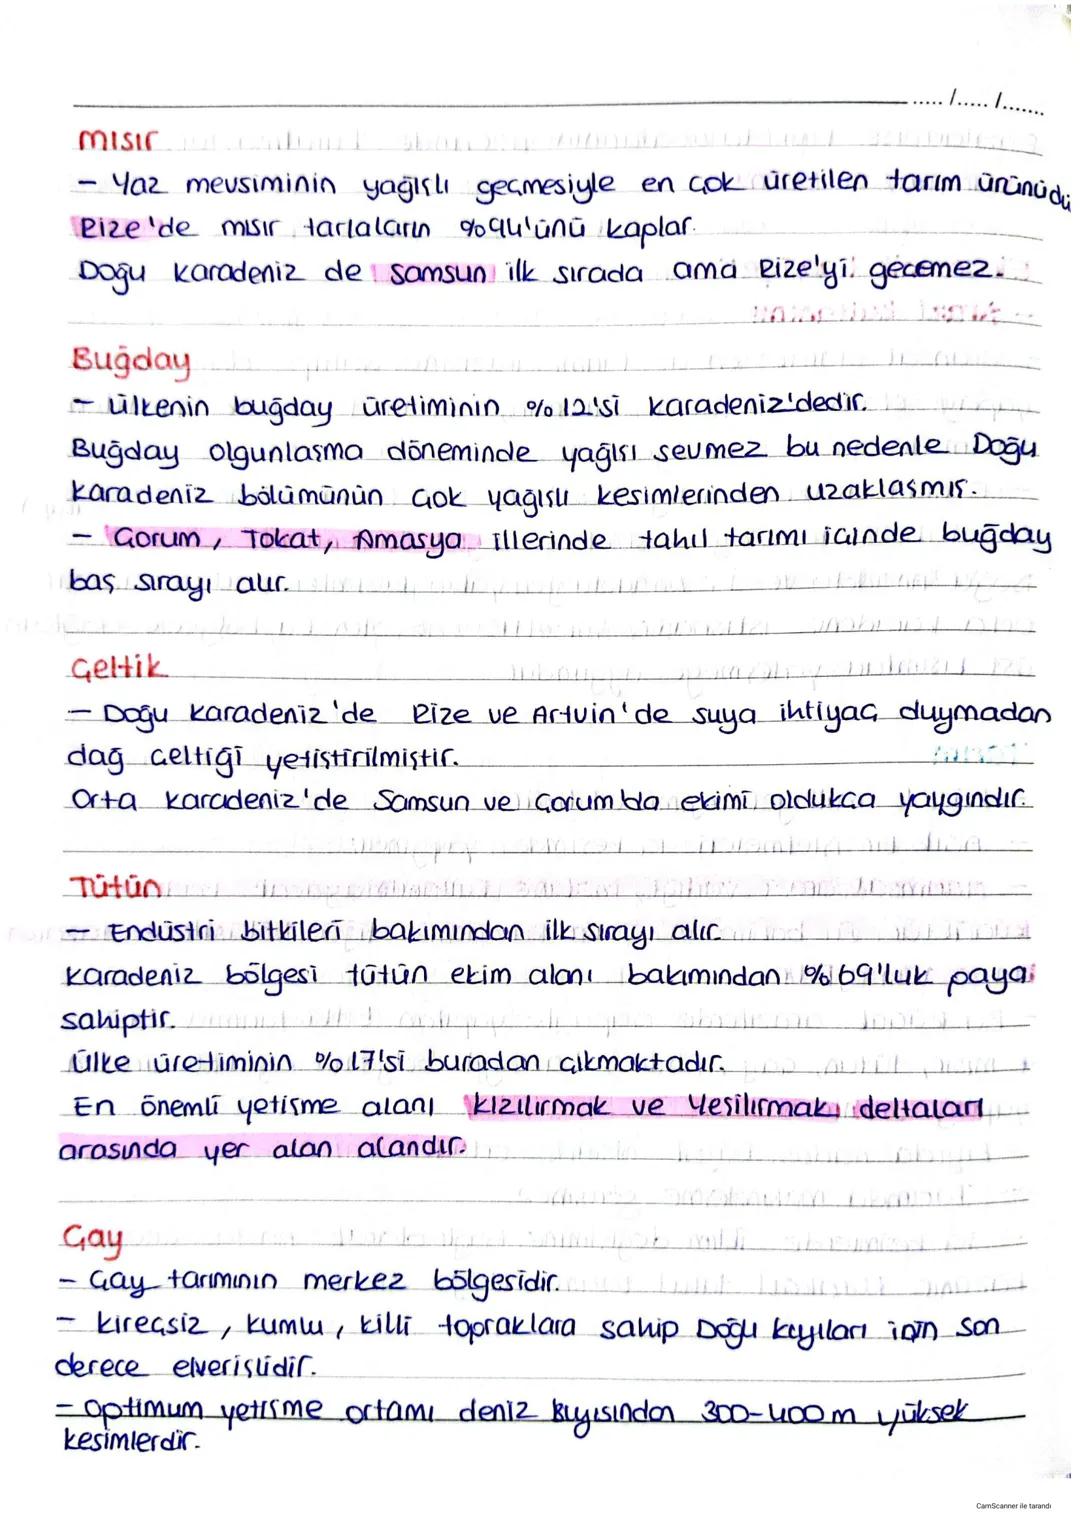 ..... /..... /.......
mısır
- Yaz mevsiminin yağışlı geçmesiyle en çok üretilen tarım ürünüdü
Rize'de mısır tarlaların %94'ünü kaplar.
Doğu karadeniz de Samsun ilk sırada ama Rize'yi geçemez.
Buğday
- Ülkenin buğday üretiminin %12'si karadeniz'dedir.
Buğday olgunlaşma döneminde yağışı sevmez bu nedenle Doğu
karadeniz bölümünün çok yağışlı kesimlerinden uzaklaşmış.
- Çorum, Tokat, Amasya illerinde tahıl tarımı içinde buğday
baş sırayı alır.
Çeltik
- Doğu karadeniz'de Rize ve Artvin'de suya ihtiyaç duymadan
dağ çeltiği yetiştirilmiştir.
Orta karadeniz'de Samsun ve Çorum'da ekimi oldukça yaygındır.
Tütün
- Endüstri bitkileri bakımından ilk sırayı alır.
karadeniz bölgesi tütün ekim alanı bakımından %69'luk paya
sahiptir.
Ülke üretiminin %17'si buradan çıkmaktadır.
En önemli yetişme alanı kızılırmak ve Yeşilırmak deltaları
arasında yer alan alandır.
Çay
- Çay tarımının merkez bölgesidir.
- kireçsiz, kumlu, killi topraklara sahip Doğu kıyıları için son
derece elverişlidir.
- optimum yetişme ortamı deniz kıyısından 300-400 m yüksek
kesimlerdir.
CamScanner ile tarandı